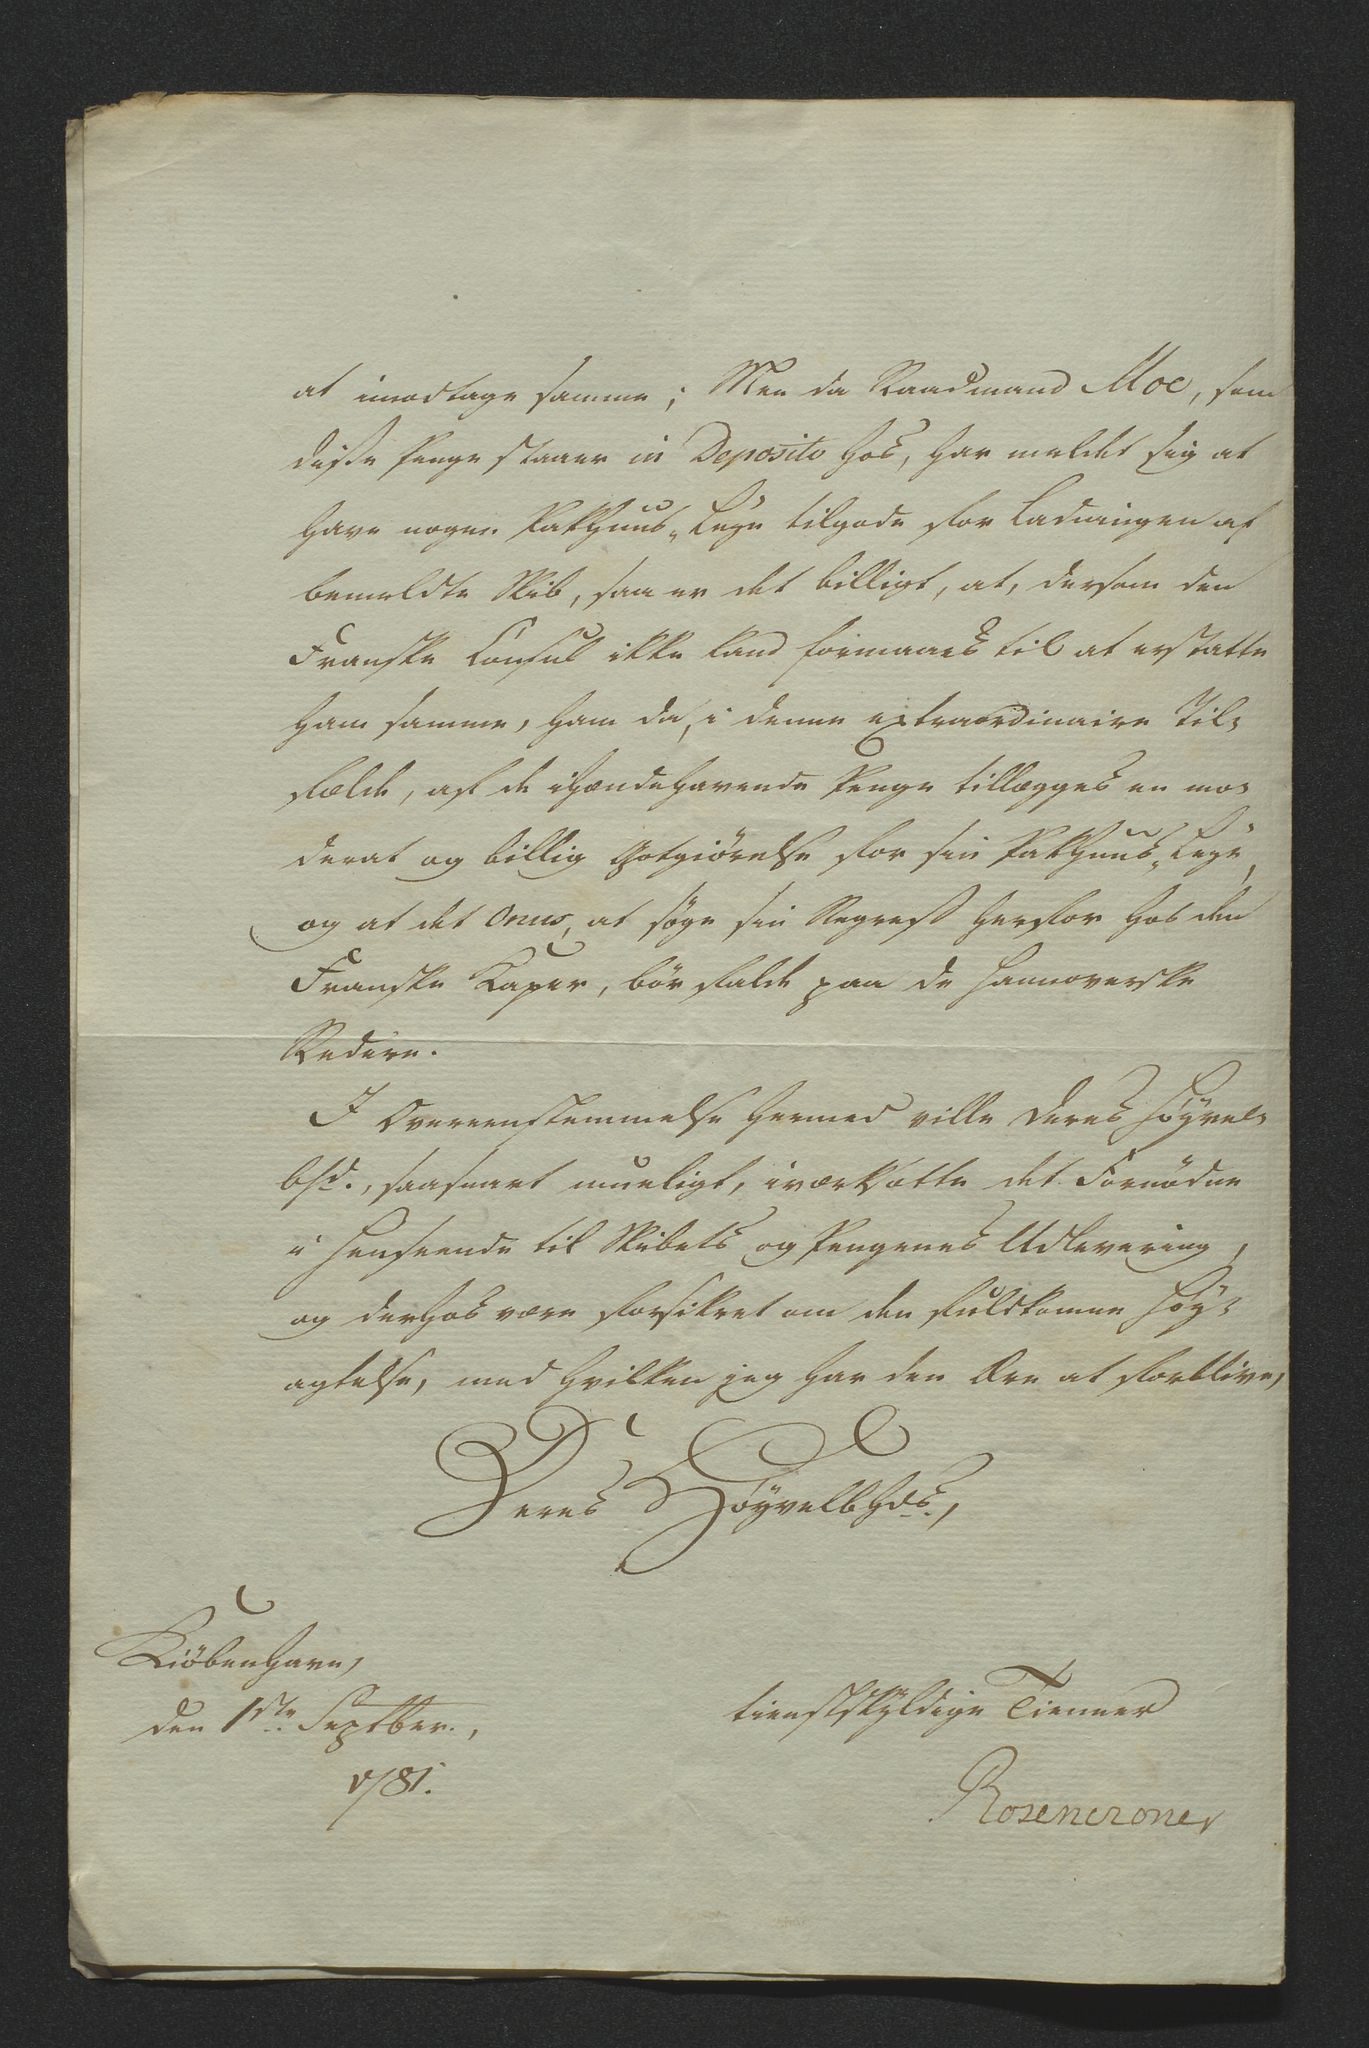 at imodtage samme; Men da Raadmand Moe, som
disse Penge staaer in Deposito hos, har meldet sig at
have nogen Pakhuus-Leye tilgode for Ladningen af
bemeldte Skib, saa er det billigt, at, dersom den
Franske Consul ikke kand formaaes til at erstatte
ham samme, ham da, i denne extraordinaire Til-
fælde, af de ihændehavende Penge tillægges en mo-
derat og billig Gotgiörelse for sin Pakhuus-Leye,
og at det Onus, at söge sin Regress herfor hos den
Franske Caper, bör falde paa de Hannoverske
Redere.
I Overeensstemmelse hermed ville Deres Höyvel-
bhd., saasnart mueligt, iværksætte det Fornödne
i Henseende til Skibets og Pengenes Udlevering,
og derhos være forsikret om den fuldkomne Höy-
agtelse, med hvilken jeg har den Ære at forblive,
Deres Höyvelbhds.,
Kiöbenhavn,
den 1ste Septber.,
1781.
tienstskyldige Tienner
Rosencrone